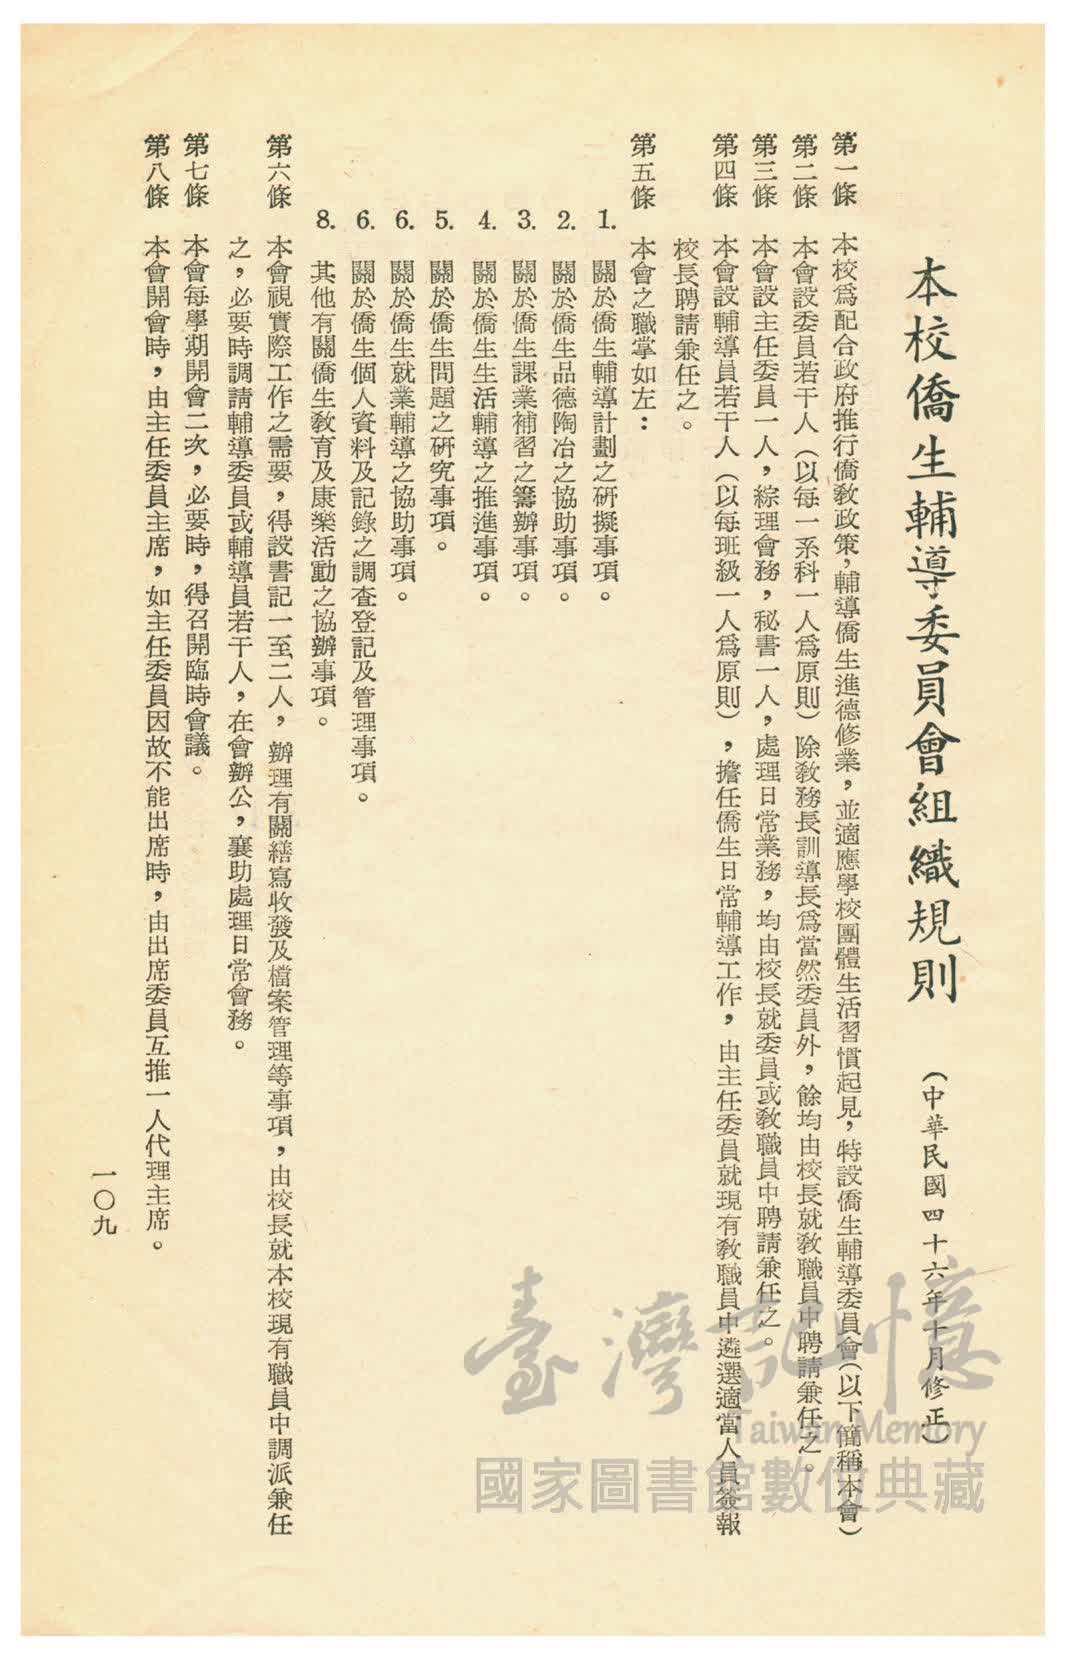 本校僑生輔導委員會組織規則 （中華民國四十六年十月修正）
第一條 本校爲配合政府推行僑教政策，輔導僑生進德修業，並適應學校團體生活習慣起見，特設僑生輔導委員會（以下簡稱本會）
第二條 本會設委員若干人（以每一系科一人爲原則）除教務長訓導長爲當然委員外，餘均由校長就教職員中聘請兼任之。
第三條 本會設主任委員一人，綜理會務，秘書一人，處理日常業務，均由校長就委員或教職員中聘請兼任之。
第四條 本會設輔導員若干人（以每班級一人爲原則），擔任僑生日常輔導工作，由主任委員就現有教職員中遴選適當人員簽報
校長聘請兼任之。
第五條 本會之職掌如左：
1. 關於僑生輔導計劃之研擬事項。
2. 關於僑生品德陶冶之協助事項。
3. 關於僑生課業補習之籌辦事項。
4. 關於僑生生活輔導之推進事項。
5. 關於僑生問題之研究事項。
6. 關於僑生就業輔導之協助事項。
6. 關於僑生個人資料及記錄之調查登記及管理事項。
8. 其他有關僑生敎育及康樂活動之協辦事項。
第六條 本會視實際工作之需要，得設書記一至二人，辦理有關繕寫收發及檔案管理等事項，由校長就本校現有職員中調派兼任
之，必要時調請輔導委員或輔導員若干人，在會辦公，襄助處理日常會務。
第七條 本會每學期開會二次，必要時，得召開臨時會議。
第八條 本會開會時，由主任委員主席，如主任委員因故不能出席時，由出席委員互推一人代理主席。
一〇九
臺灣記憶
Taiwan Memory
國家圖書館數位典藏